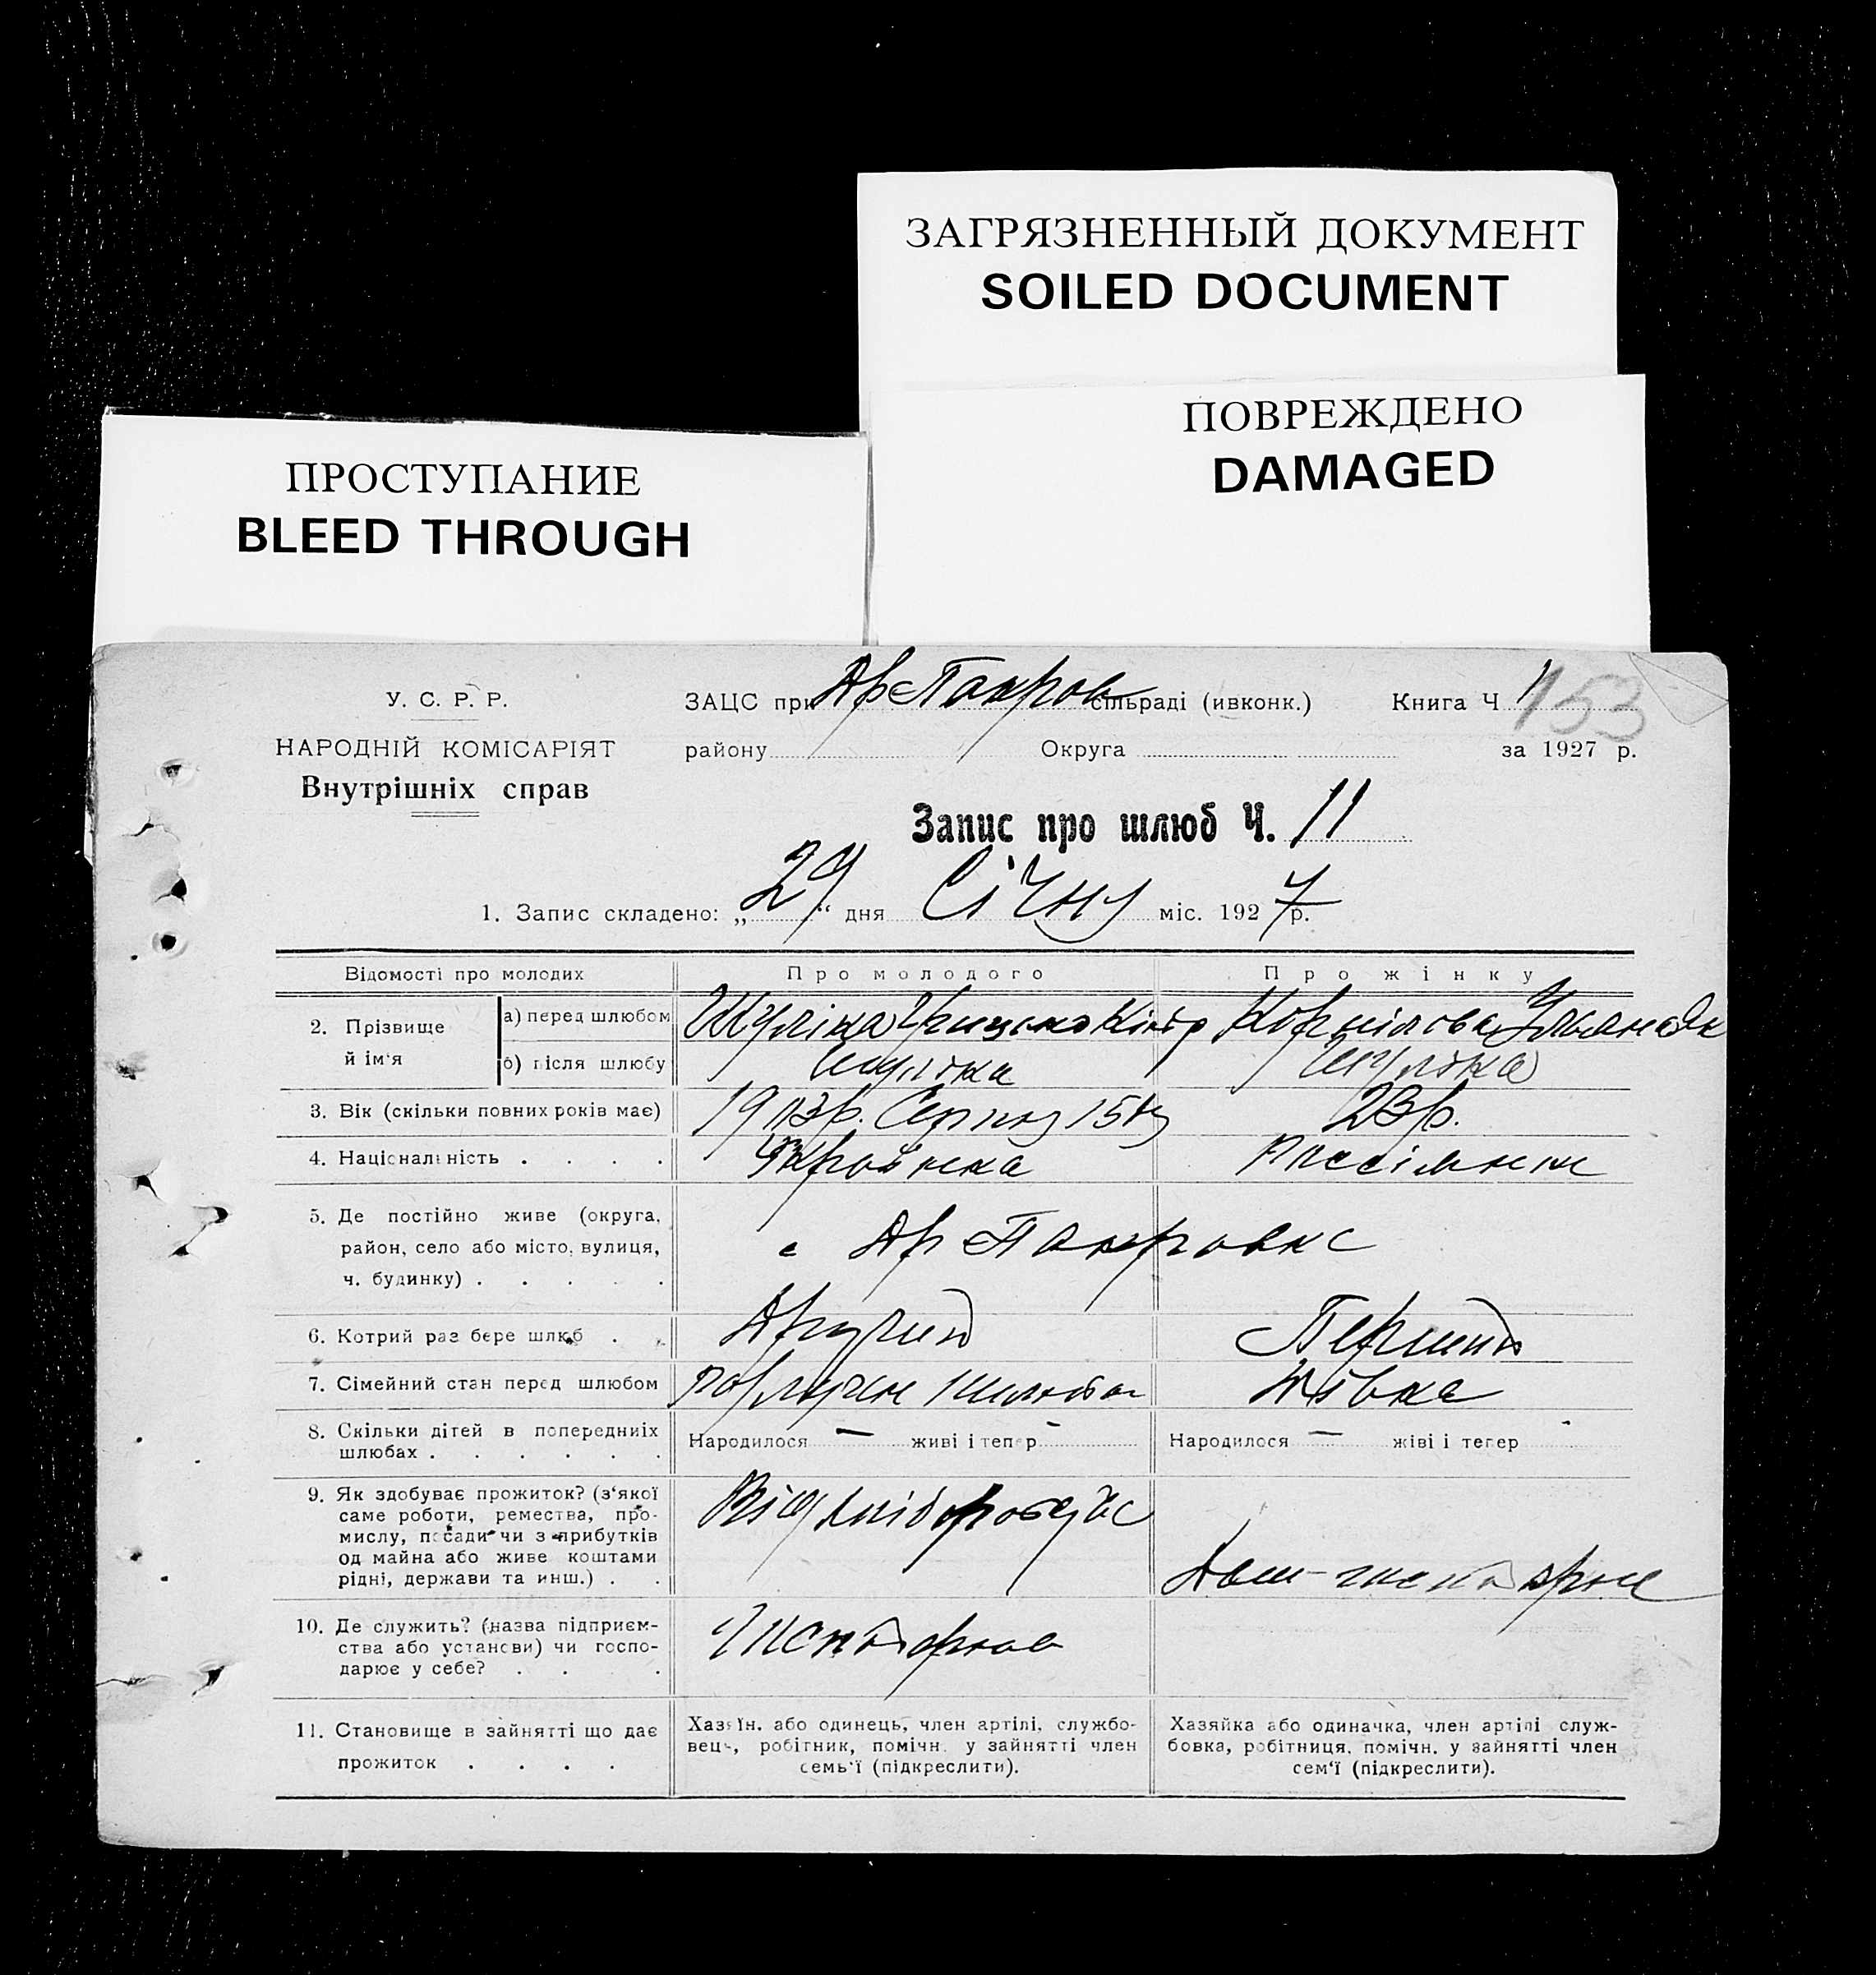 ЗАГРЯЗНЕННЫЙ ДОКУМЕНТ
SOILED DOCUMENT
ПОВРЕЖДЕНО
DAMAGED
ПРОСТУПАНИЕ
BLEED THROUGH
У. С. Р. Р.
НАРОДНІЙ КОМІСАРІЯТ
Внутрішніх справ
ЗАЦС при Ар Покров сільраді (ивконк.) Книга Ч 1 153
району Округа за 1927 р.
Запис про шлюб Ч. 11
1. Запис складено: „29“ дня Січня міс. 1927 р.
Відомості про молодих Про молодого Про жінку
2. Прізвище й ім'я
а) перед шлюбом Шуліка Грицько Корнілова Уляна
б) після шлюбу Шуліка Шуліка
3. Вік (скільки повних років має) Серпня 15 23 р.
4. Національність . . . .
5. Де постійно живе (округа,
район, село або місто, вулиця,
ч. будинку) . . . . .
с Ар Покровкс
6. Котрий раз бере шлюб . . Другий Перший
7. Сімейний стан перед шлюбом шлюба Дівка
8. Скільки дітей в попередніх
шлюбах . . . . . .
Народилося — живі і тепер Народилося — живі і тепер
9. Як здобуває прожиток? (з'якої
саме роботи, ремества, про-
мислу, посади чи з прибутків
од майна або живе коштами
рідні, держави та инш.) . .
10. Де служить? (назва підприєм-
ства або установи) чи госпо-
дарює у себе? . . .
11. Становище в зайнятті що дає
прожиток . . . .
Хазяїн. або одинець, член артілі, службо-
вець, робітник, помічн. у зайнятті член
семь'ї (підкреслити).
Хазяйка або одиначка, член артілі служ-
бовка, робітниця, помічн. у зайнятті член
сем'ї (підкреслити).